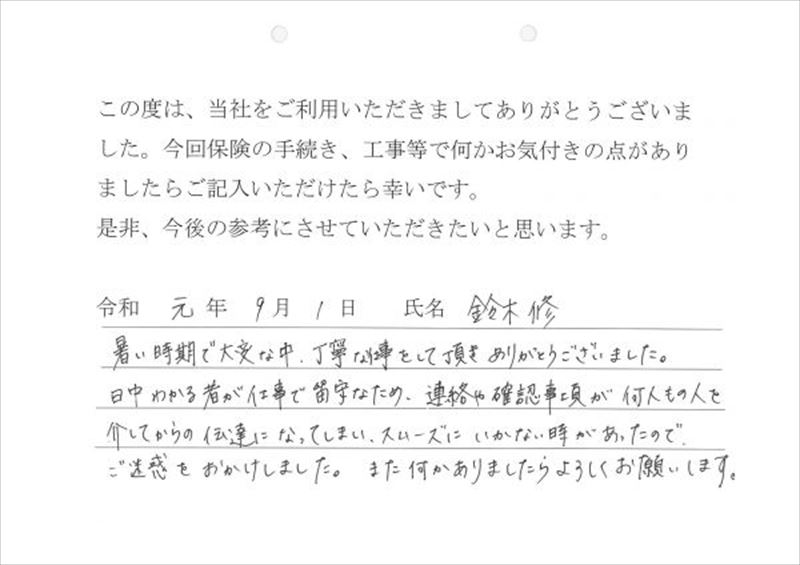 この度は、当社をご利用いただきましてありがとうございま
した。今回保険の手続き、工事等で何かお気付きの点があり
ましたらご記入いただけたら幸いです。
是非、今後の参考にさせていただきたいと思います。
令和 元 年 9 月 1 日 氏名 鈴木修
暑い時期で大変な中、丁寧な仕事をして頂きありがとうございました。
日中わかる者が仕事で留守なため、連絡や確認事項が何人もの人を
介してからの伝達になってしまい、スムーズにいかない時があったので、
ご迷惑をおかけしました。また何かありましたらよろしくお願いします。